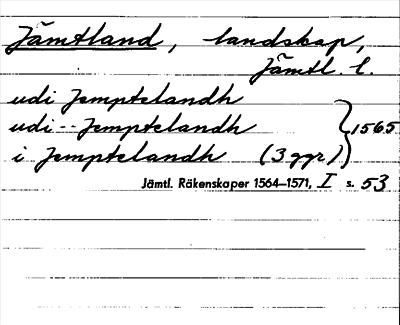 Jämtland, landskap,
Jämtl. l.
udi Jemptelandh
udi -- Jemptelandh } 1565
i Jemptelandh (3 ggr)
Jämtl. Räkenskaper 1564–1571, I s. 53